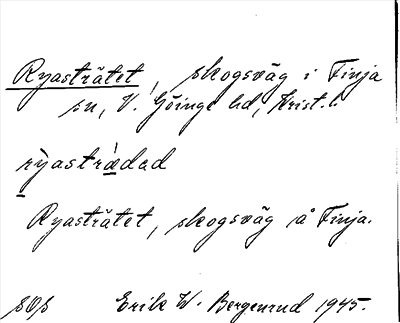 Ryasträtet, skogsväg i Finja
sn, V. Göinge hd, Krist.
rỳastrǽdad
Ryasträtet, skogsväg å Finja.
Erik W. Bergenrud 1945.